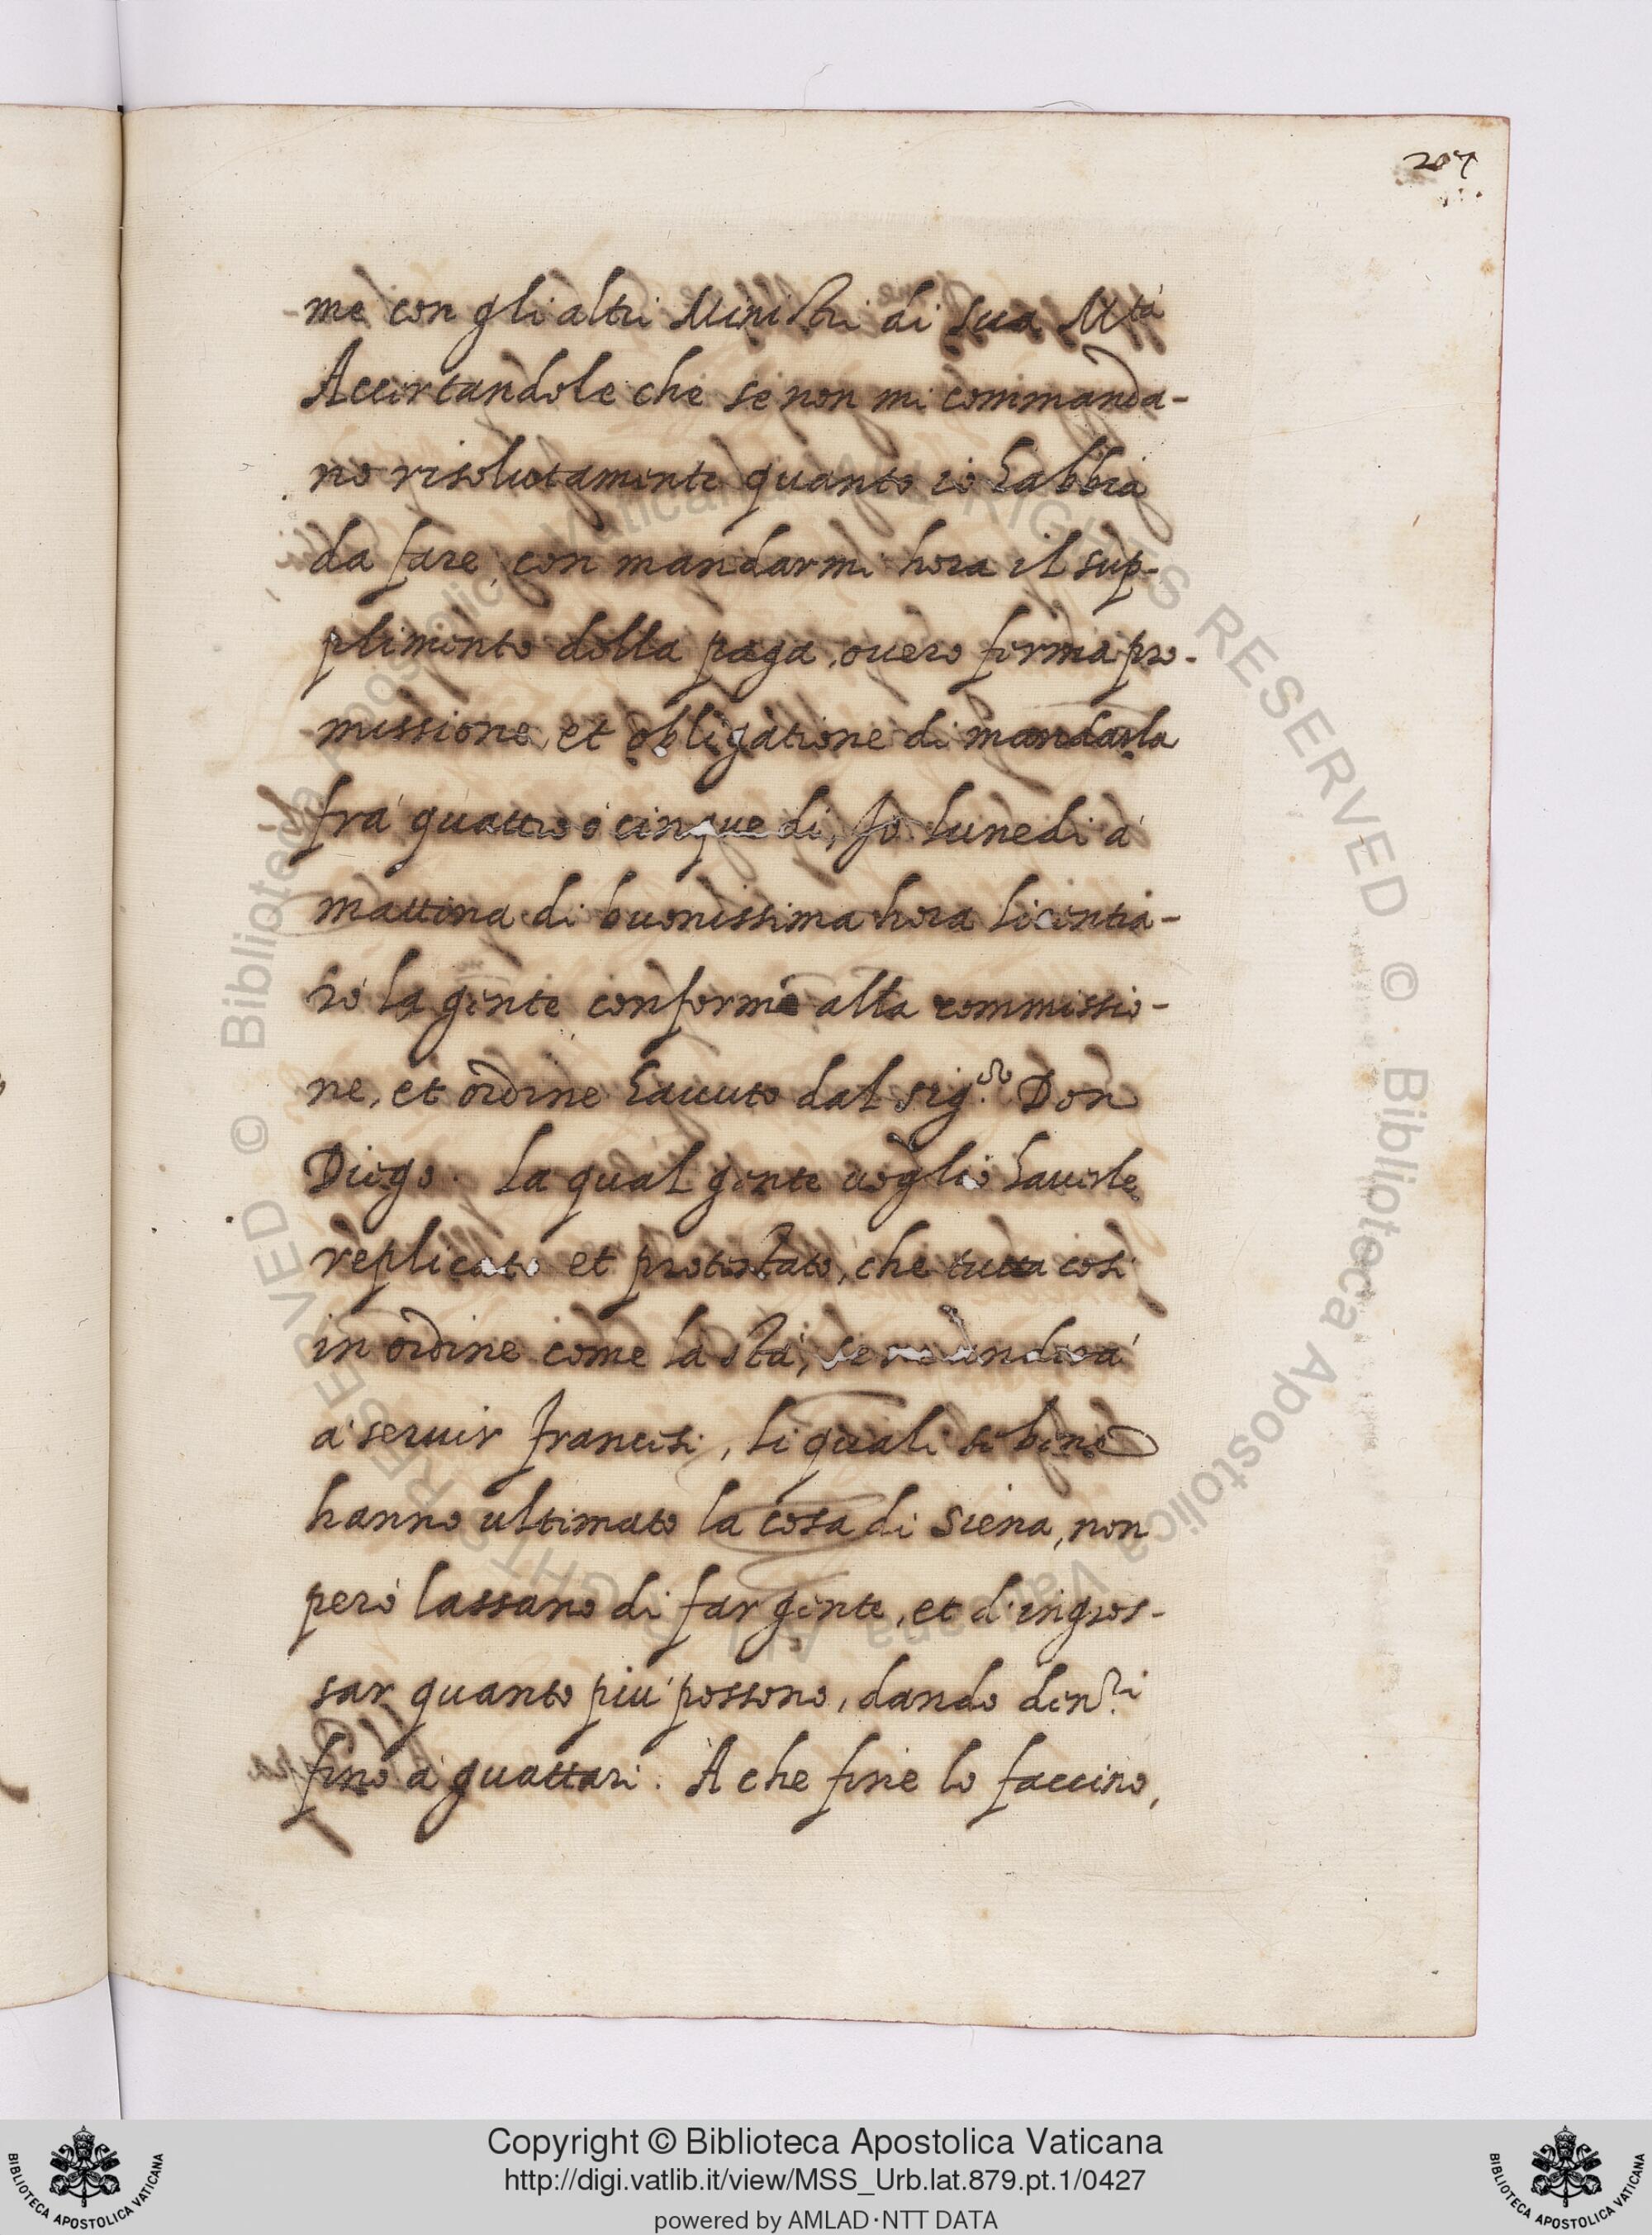 207
me con gli altri Ministri di sua M.tà
Accertandole che se non mi commanda-
no risolutamente quanto io habbia
da fare, con mandarmi hora il sup-
plimento della paga, ouero ferma pro-
missione, et obligatione di mandarla
frà quattro ò cinque di, Io lunedi à
mattina di buonissima hora licentia-
rò la gente conforme alla commissio-
ne, et ordine hauuto dal sig.re Don
Diego. La qual gente voglio hauerle
replicato et protestato, che tutta così
in ordine come la stà, se
à seruir Francesi, li quali se bene
hanno ultimato la cosa di Siena, non
però lassano di far gente, et d'ingros-
sar quanto più possono, dando den.ri
fino à quattari. A che fine lo faccino,
© Biblioteca Apostolica Vaticana ALL RIGHTS RESERVED © Biblioteca Apostolica Vaticana ALL RIGHTS RESERVED
Copyright © Biblioteca Apostolica Vaticana
http://digi.vatlib.it/view/MSS_Urb.lat.879.pt.1/0427
powered by AMLAD·NTT DATA
BIBLIOTECA APOSTOLICA VATICANA
BIBLIOTECA APOSTOLICA VATICANA